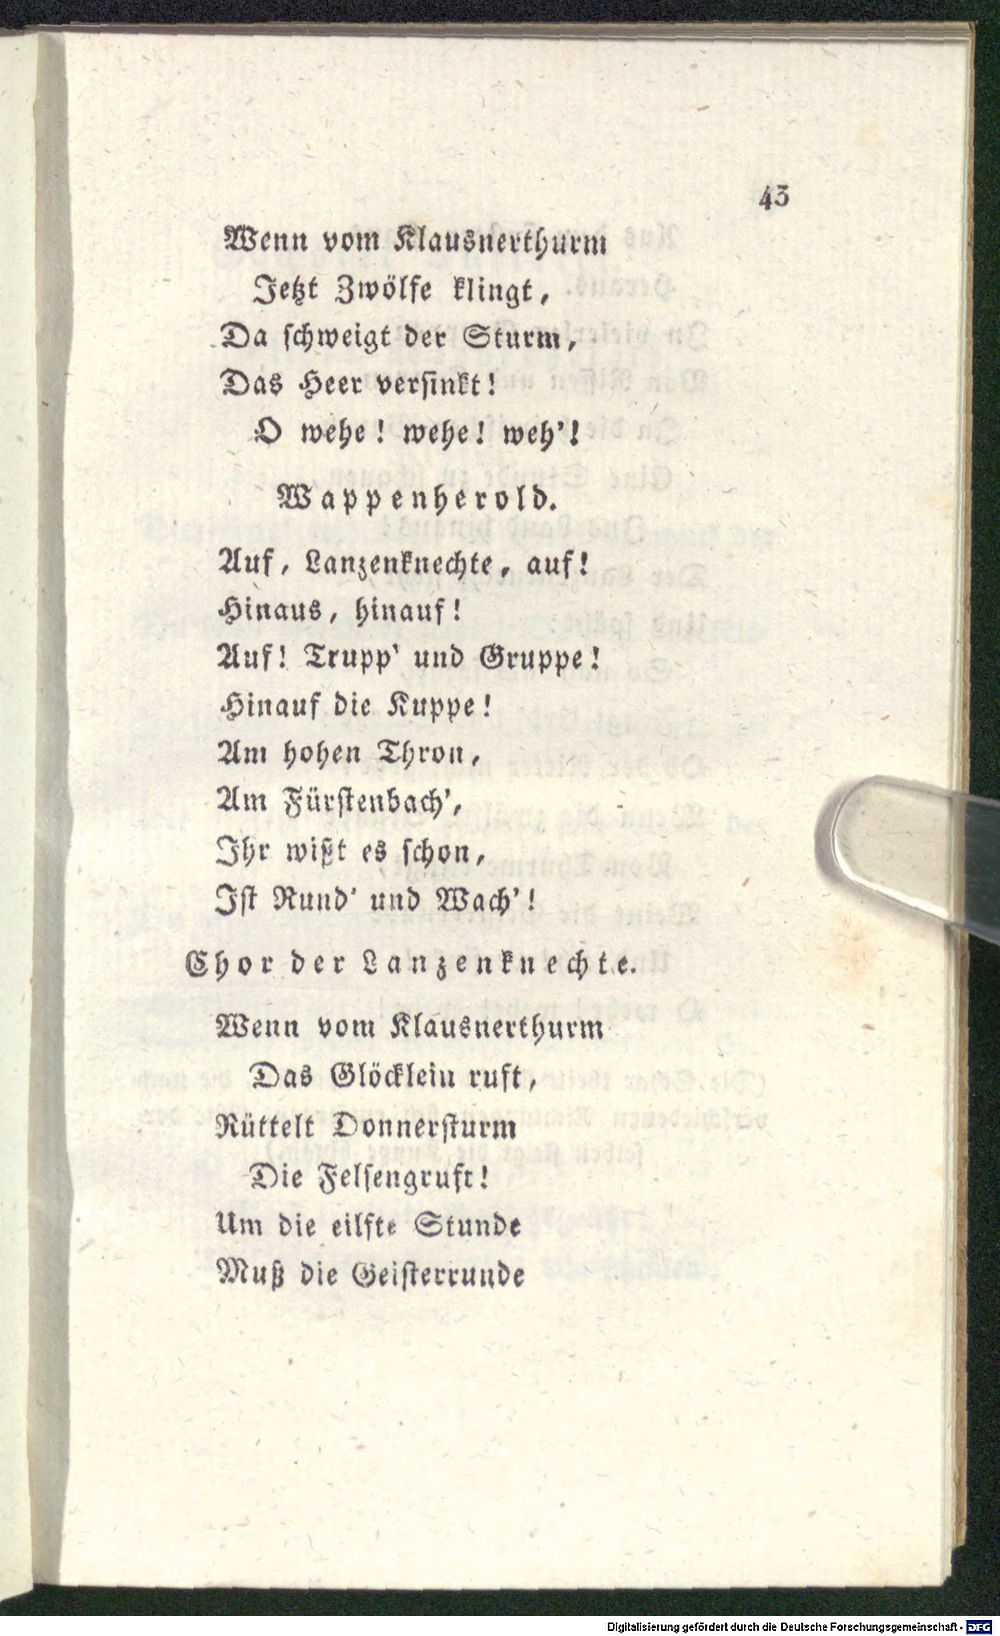 43
Wenn vom Klausnerthurm
Jetzt Zwölfe klingt,
Da schweigt der Sturm,
Das Heer versinkt!
O wehe! wehe! weh'!
Wappenherold.
Auf, Lanzenknechte, auf!
Hinaus, hinauf!
Auf! Trupp' und Gruppe!
Hinauf die Kuppe!
Am hohen Thron,
Am Fürstenbach',
Ihr wißt es schon,
Ist Rund' und Wach'!
Chor der Lanzenknechte.
Wenn vom Klausnerthurm
Das Glöcklein ruft,
Rüttelt Donnersturm
Die Felsengruft!
Um die eilfte Stunde
Muß die Geisterrunde
Digitalisierung gefördert durch die Deutsche Forschungsgemeinschaft - DFG